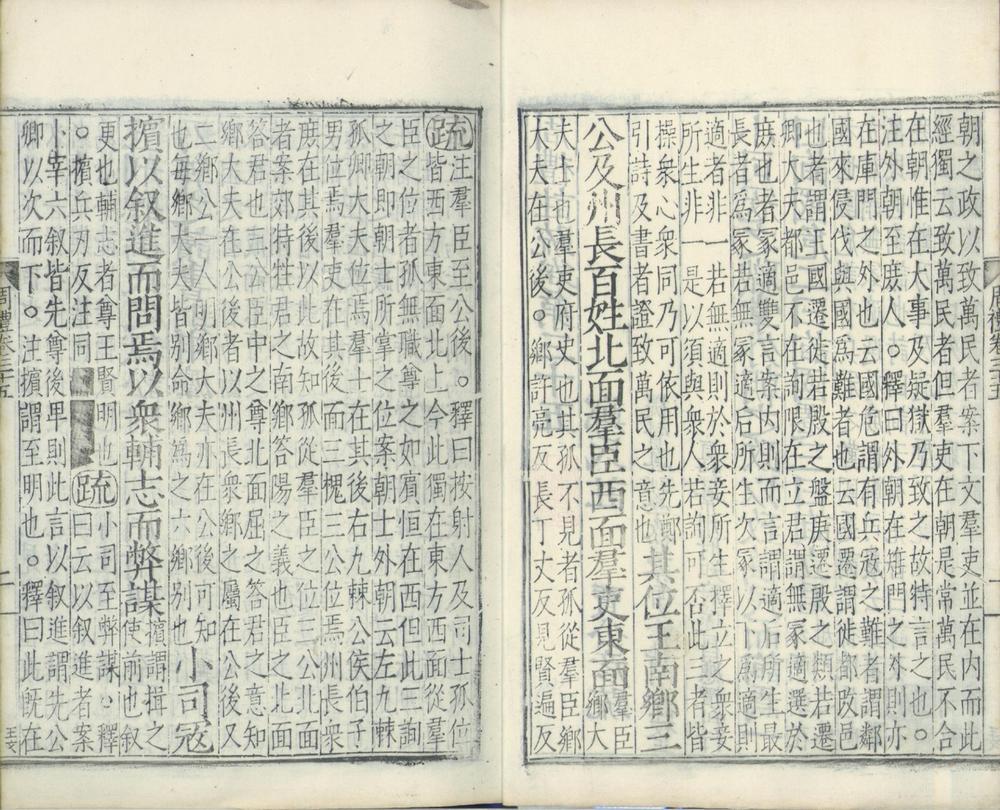 朝之政以致萬民者案下文羣吏並在內而此
經獨云致萬民者但羣吏在朝是常萬民不合
在朝惟在大事及疑獄乃致之故特言之也。
注外朝至庶人。釋曰外朝在雉門之外則亦
在庫門之外也云國危謂有兵寇之難者謂鄰
國來侵伐與國爲難者也云國遷謂徙都改邑
也者謂王國遷徙若殷之盤庚遷殷之類若遷
卿大夫都邑不在詢限在立君謂無冢適選於
庶也者冢適雙言案內則而言謂適后所生最
長者爲冢若無冢適后所生次冢以下爲適則
適者非一若無適則於衆妾所生擇立之衆妾
所生非一是以須與衆人若詢可否此三者皆
採衆心衆同乃可依用也先鄭
引詩及書者證致萬民之意也其位王南鄉三
公及州長百姓北面羣臣西面羣吏東面羣臣卿大
夫士也羣吏府史也其孤不見者孤從羣臣鄉
大夫在公後。鄉許亮反長丁丈反見賢遍反
疏注羣臣至公後。釋曰按射人及司士孤位
皆西方東面北上今此獨在東方西面從羣
臣之位者孤無職尊之如賓恒在西但此三詢
之朝即朝士所掌之位案朝士外朝云左九棘
孤卿大夫位焉羣士在其後右九棘公侯伯子
男位焉羣吏在其後面三槐三公位焉州長衆
庶在其後以此故知孤從羣臣之位三公北面
者案郊特牲君之南鄉荅陽之義也臣之北面
荅君也三公臣中之尊北面屈之荅君之意知
鄉大夫在公後者以州長衆鄉之屬在公後又
二鄉公一人明鄉大夫亦在公後可知
也每鄉大夫皆別命鄉爲之六鄉別也小司寇
擯以叙進而問焉以衆輔志而弊謀擯謂揖之使前也叙
更也輔志者尊王賢明也小司至弊謀。釋
。擯兵刃反注同疏曰云以叙進者案
小宰六叙皆先尊後卑則此言以叙進謂先公
卿以次而下。注擯謂至明也。釋曰此旣在